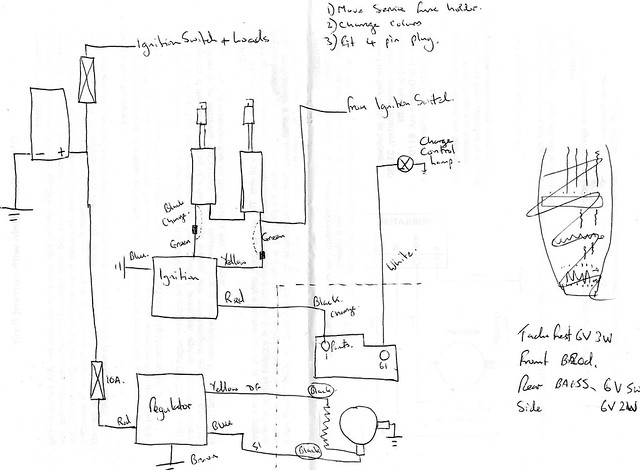 1) Move Service fuse holder.
2) Change colours
3) Fit 4 pin plug.
Ignition Switch + Loads
From Ignition Switch.
Charge
Control
Lamp.
- +
Black
Change.
Green
Green
Blue
Yellow
Ignition
Red
White
Black
Change
Points
1
61
10A.
Yellow DF
Black
Regulator
Red
Blue
61
Black
Brown
6V 3W
Front
Rear
6V 5W
Side 6V 2W